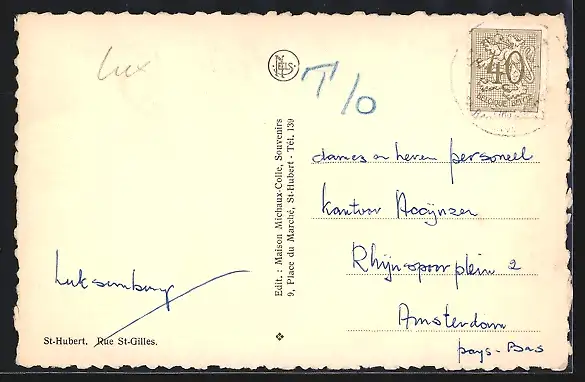 lux
T/0
40
c
BELGIQUE-BELGIE
Edit. : Maison Michaux-Colle, Souvenirs
9, Place du Marché, St-Hubert - Tél. 139
dames en heren personeel
kantoor
Rhijnspoorplein 2
Amsterdam
pays-Bas
Luksemburg
St-Hubert. Rue St-Gilles.